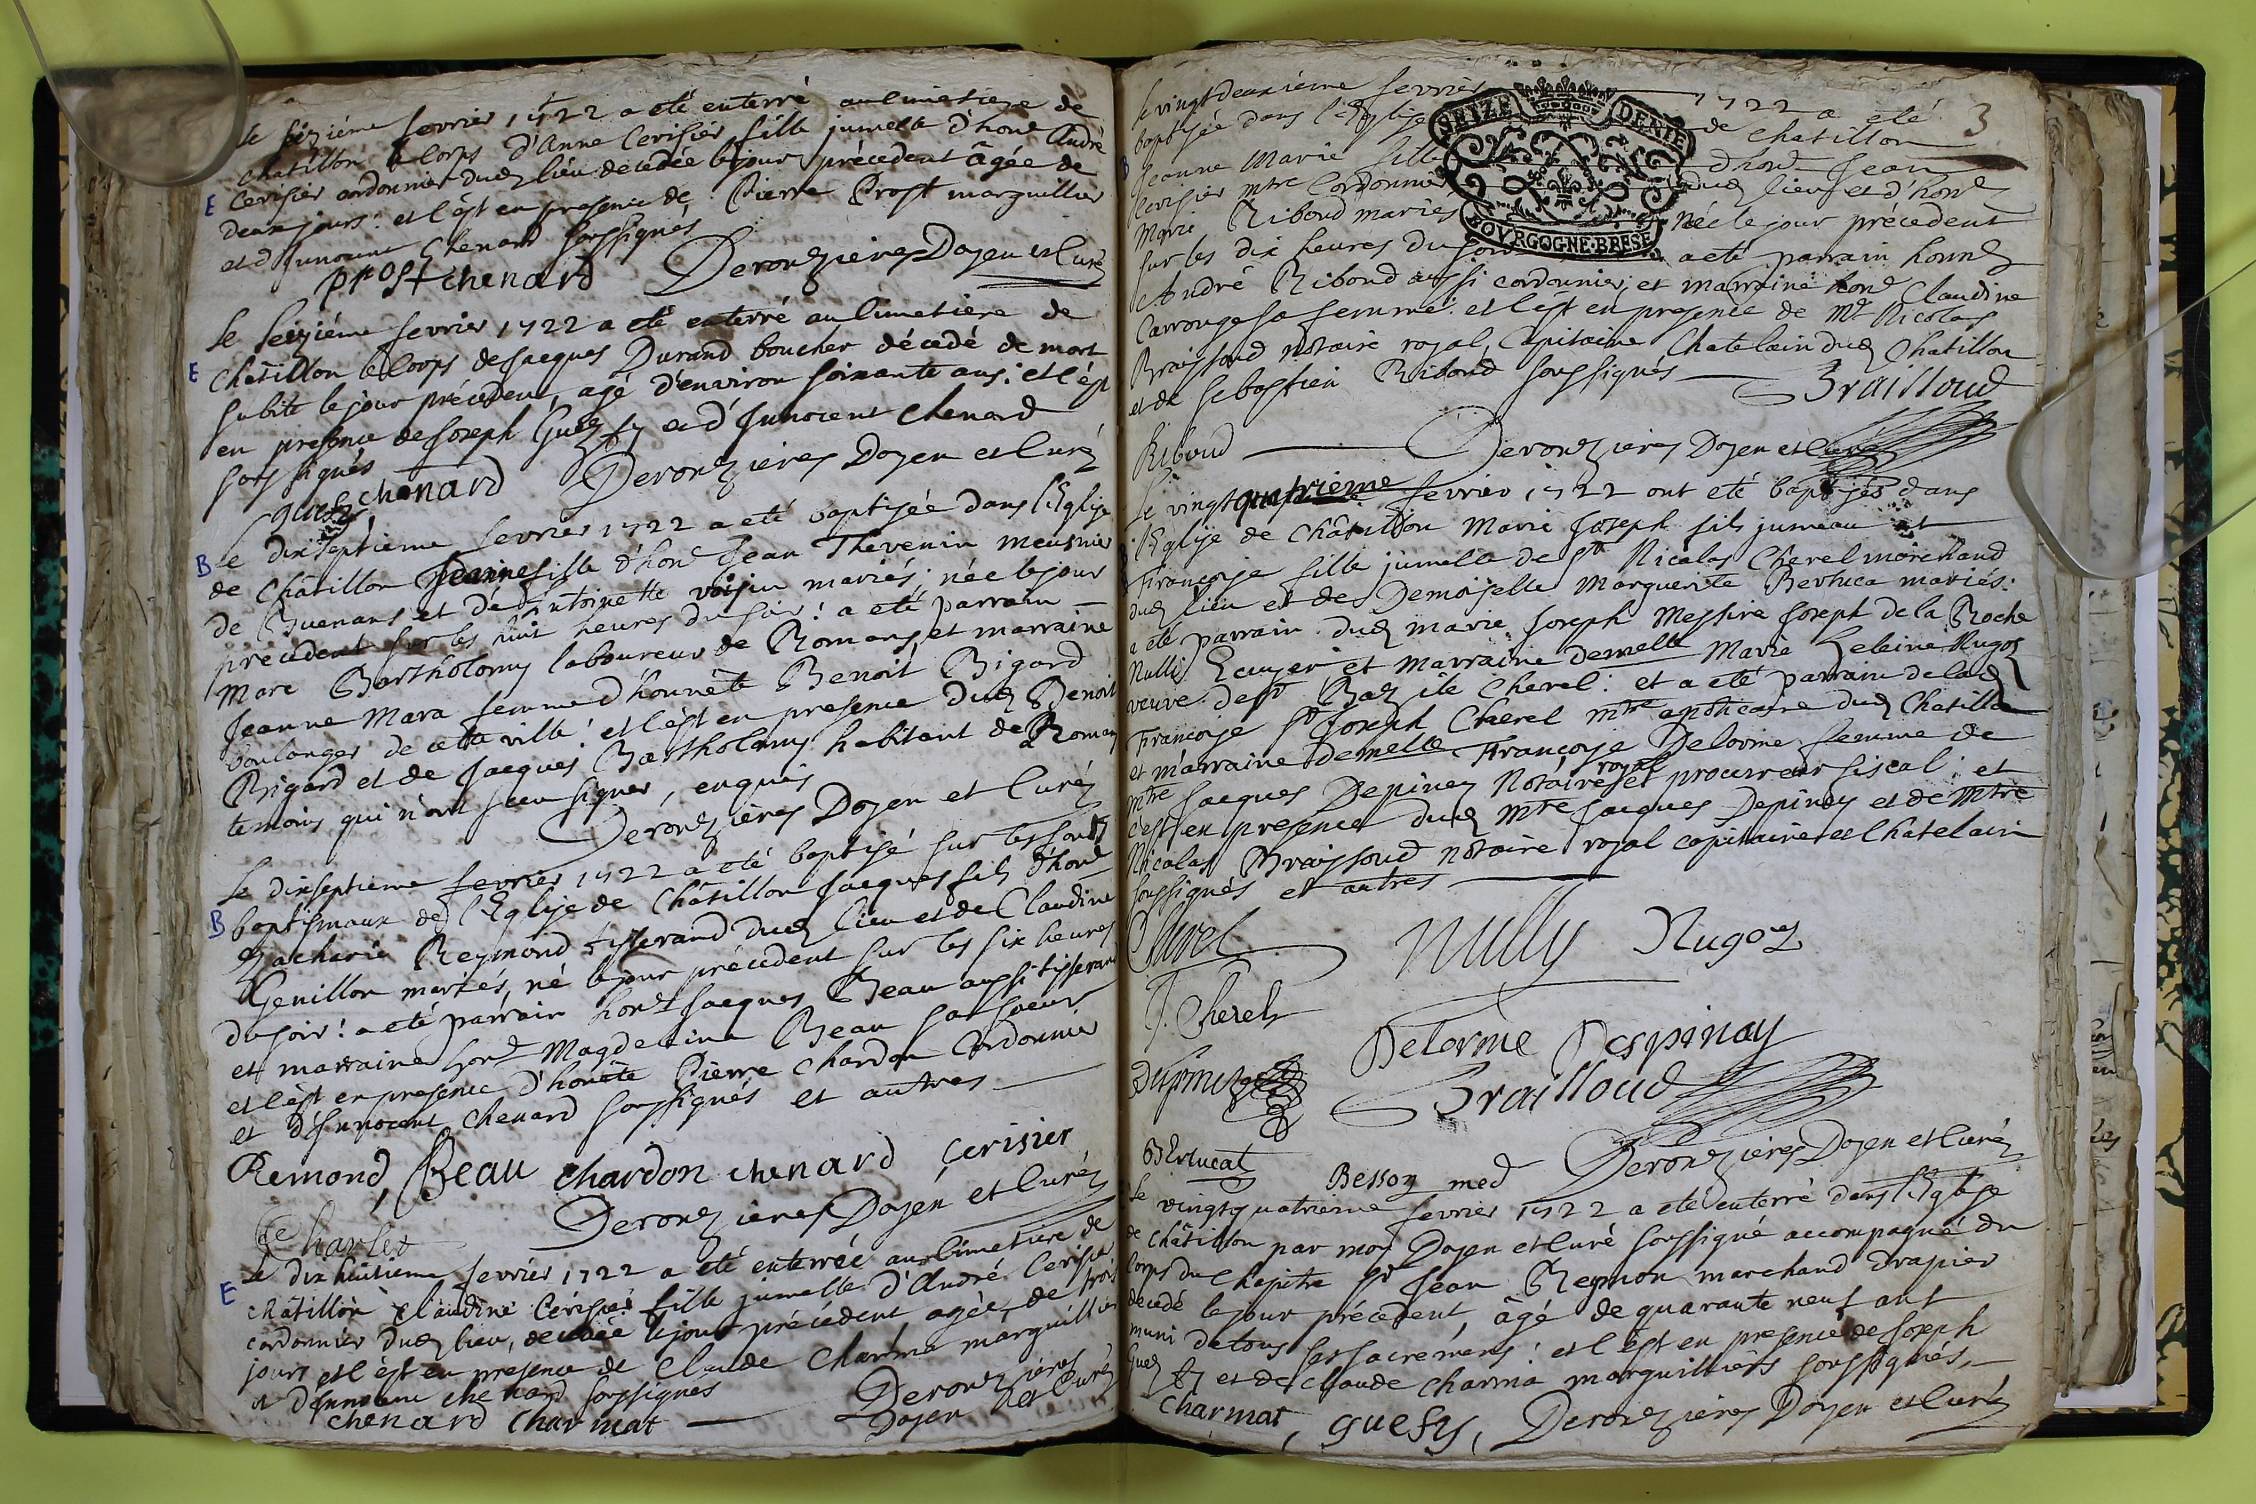 Le sezième fevrier 1722 a eté enterré au cimetiere de
chatillon le corps d'Anne Cerisier fille jumelle d'hone André
E Cerisier cordonnier dud lieu decedée le jour précedent âgée de
deux jours: et c'est en presence de Pierre Prost marguillier
et d'Innocent Chenard soussignés
prost chenard Deronzieres Doyen et Curé
Le seizième fevrier 1722 a eté enterré au cimetière de
E Châtillon le corps de Jacques Durand boucher décédé de mort
subite le jour précedent, agé d'environ soixante ans: et c'est
en presence de Joseph Guefy et d'Innocent Chenard
soussignés
guefy chenard Deronzieres Doyen et Curé
B Le dix septième fevrier 1722 a eté baptisée dans l'Eglise
de Châtillon Jeanne fille d'hone Jean Thevenin meusnier
de Buenans et de Antoinette voisin mariés; née le jour
précédent sur les huit heures du soir: a eté parrain
Marc Bartholomy laboureur de Romans et marraine
Jeanne Mara femme d'honnête Benoit Bigard
boulanger de cette ville: et c'est en presence dud Benoit
Bigard et de Jacques Bartholomy habitant de Romans
temoins qui n'ont sceu signer, enquis
Deronzières Doyen et Curé
Le dixseptieme fevrier 1722 a eté baptisé sur les fonts
B baptismaux de l'Eglise de Châtillon Jacques fils d'hone
Zacharie Reymond tisserand dud lieu et de Claudine
Genillon mariés, né le jour précédent sur les six heures
du soir: a eté parrain hone Jacques Beau aussi tisserand
et marraine hone Magdeleine Beau sa soeur
et c'est en presence d'honête Pierre Chardon Cordonnier
et d'Innocent Chenard soussignés et autres
Remond, Beau chardon chenard cerisier
Deronzieres Doyen et Curé
Charlet
Le dix huitieme fevrier 1722 a eté enterrée au cimetiere de
E châtillon Claudine Cerisier fille jumelle d'André Cerisier
cordonnier dud lieu, decedée le jour précédent, agée de trois
jours et c'est en presence de Claude Charma marguillier
et d'Innocent chenard soussignés
chenard charmat Deronzieres
Doyen et Curé
3
SEIZE DENIE
BOVRGOGNE·BRESE
Le vingt deuxième fevrier 1722 a eté
baptisée dans l'Eglise de chatillon
B Jeanne Marie fille d'hone Jean
Cerisier mtre Cordonnier dud lieu et d'hone
Marie Riboud mariés née le jour précedent
sur les dix heures du soir a eté parrain honne
André Riboud aussi cordonnier, et marraine hone Claudine
Carronge sa femme: et c'est en presence de Mr Nicolas
Braissoud notaire royal, Capitaine Chatelain dud Chatillon
et de Sebastien Riboud soussignés
Brailloud
Riboud Deronzieres Doyen et Curé
Le vingt quatrième fevrier 1722 ont eté baptisés dans
l'Eglise de Châtillon Marie Joseph fils jumeau et
Françoise fille jumelle de Sr Nicolas Cherel marchand
dud lieu et de Demoiselle Marguerite Bertuca mariés:
a eté parrain dud marie Joseph Messire Joseph de la Roche
Nully Ecuyer et marraine demelle Marie Heleine Nugoz
veuve de sr Bazile Cherel: et a eté parrain de lad
Françoise Sr Joseph Cherel mtre apoticaire dud Chatillon
et marraine demelle Françoise Delorme femme de
mtre Jacques Depiney Notaire royal et procureur fiscal: et
c'est en presence dud Mtre Jacques Depiney et de Mtre
Nicolas Braissoud notaire royal capitaine et Chatelain
soussignés et autres
Cherel Nully Nugoz
J. Cherel
Delorme Despinay
Brailloud
Bertucat Besson med Deronzieres Doyen et Curé
Le vingt quatrieme fevrier 1722 a eté enterré dans l'Eglise
de châtillon par moy Doyen et Curé soussigné accompagné du
Corps du Chapitre Sr Jean Reymon marchand drapier
decedé le jour précedent, âgé de quarante neuf ans
muni de tous ses sacremens: et c'est en presence de Joseph
Guefy et de Claude Charma marguilliers soussignés
Charmat, guefy, Deronzieres Doyen et Curé